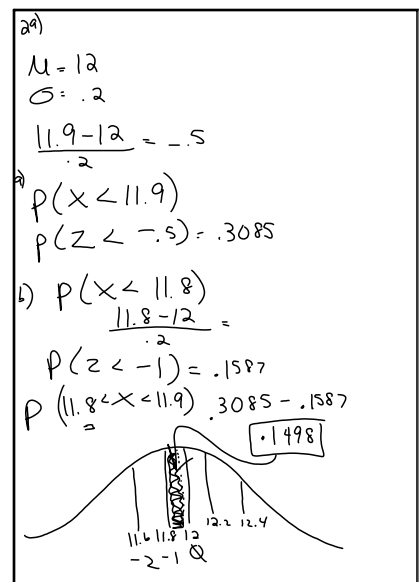 2a)
μ = 12
σ = .2
11.9-12 / .2 = -.5
a)
P(X < 11.9)
P(Z < -.5) = .3085
b) P(X < 11.8)
11.8-12 / .2 =
P(Z < -1) = .1587
P(11.8 < X < 11.9) .3085 - .1587
.1498
11.6 11.8 12 12.2 12.4
-2 -1 0